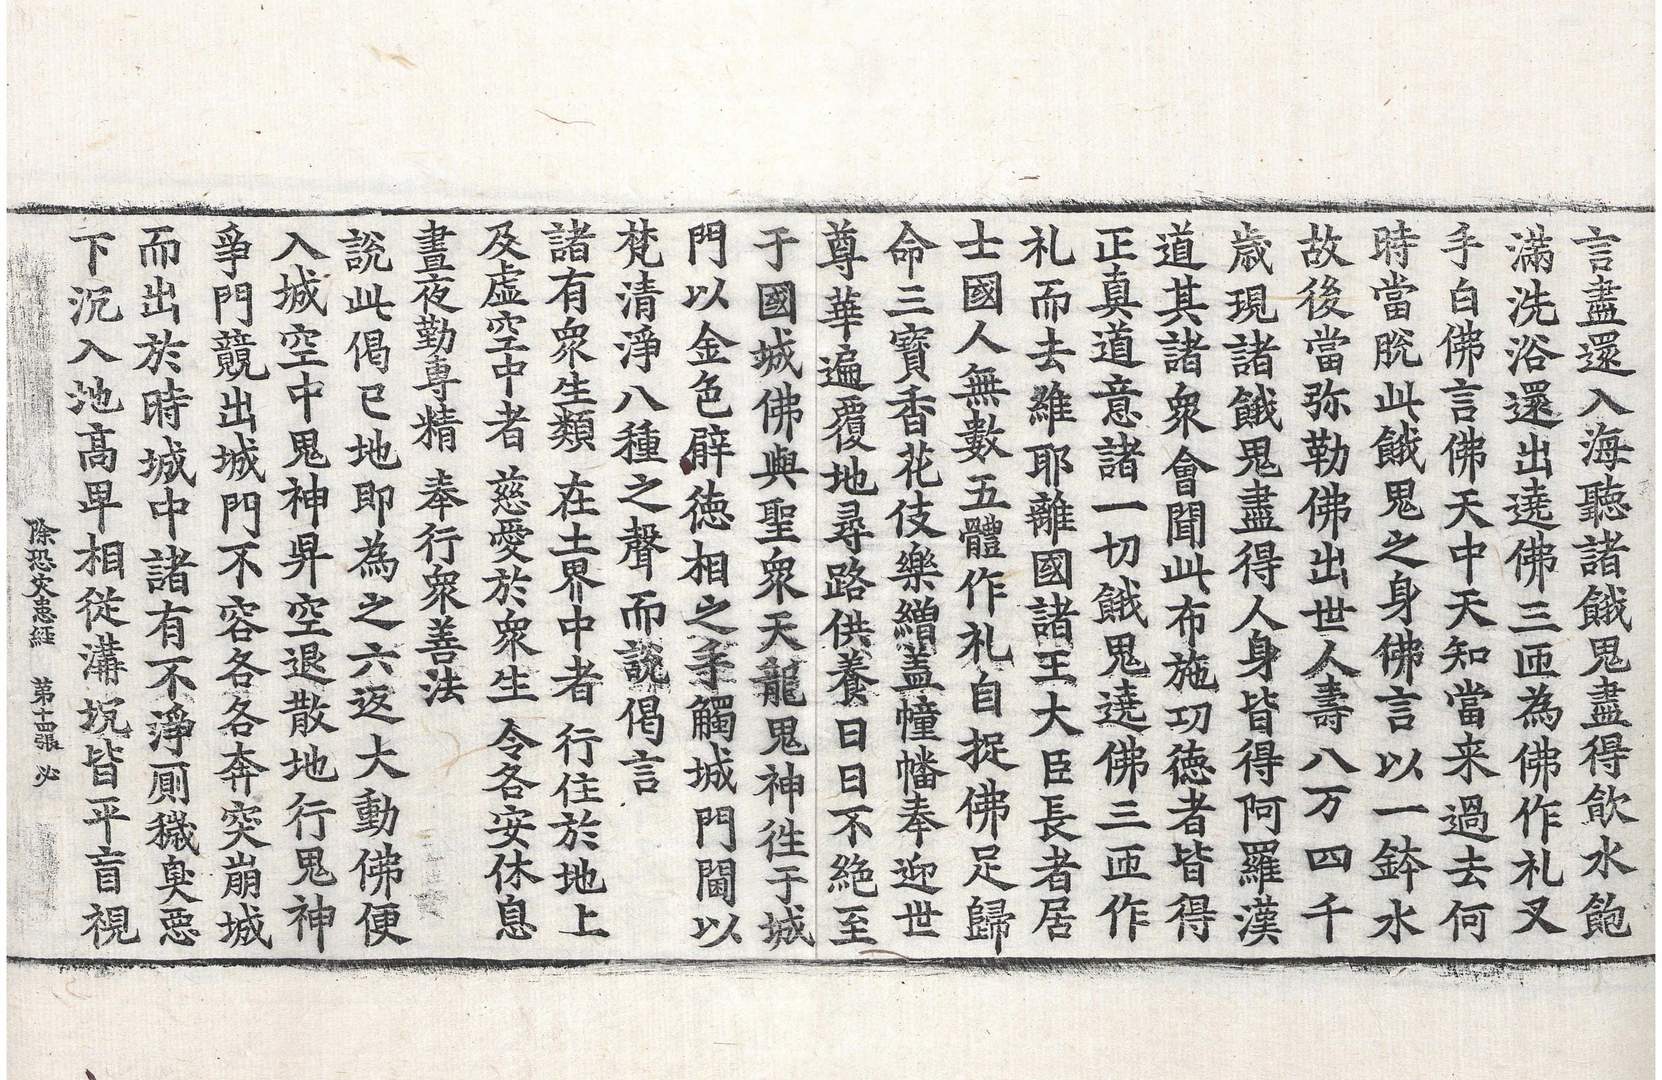 言盡還入海聽諸餓鬼盡得飮水飽
滿洗浴還出遶佛三迊為佛作礼叉
手白佛言佛天中天知當来過去何
時當脫此餓鬼之身佛言以一鉢水
故後當弥勒佛出世人壽八万四千
歳現諸餓鬼盡得人身皆得阿羅漢
道其諸衆會聞此布施功徳者皆得
正真道意諸一切餓鬼遶佛三迊作
礼而去維耶離國諸王大臣長者居
士國人無數五體作礼自捉佛足歸
命三寶香花伎樂繒蓋幢幡奉迎世
尊華遍覆地尋路供養日日不絶至
于國城佛與聖衆天龍鬼神徃于城
門以金色臂徳相之手觸城門閫以
梵清淨八種之聲而說偈言
諸有衆生類 在土界中者 行住於地上
及虛空中者 慈愛於衆生 令各安休息
晝夜勤専精 奉行衆善法
說此偈已地即為之六返大動佛便
入城空中鬼神昇空退散地行鬼神
爭門競出城門不容各各奔突崩城
而出於時城中諸有不淨厠穢臭惡
下沉入地高卑相從溝坑皆平盲視
除恐灾患經 第十四張 必